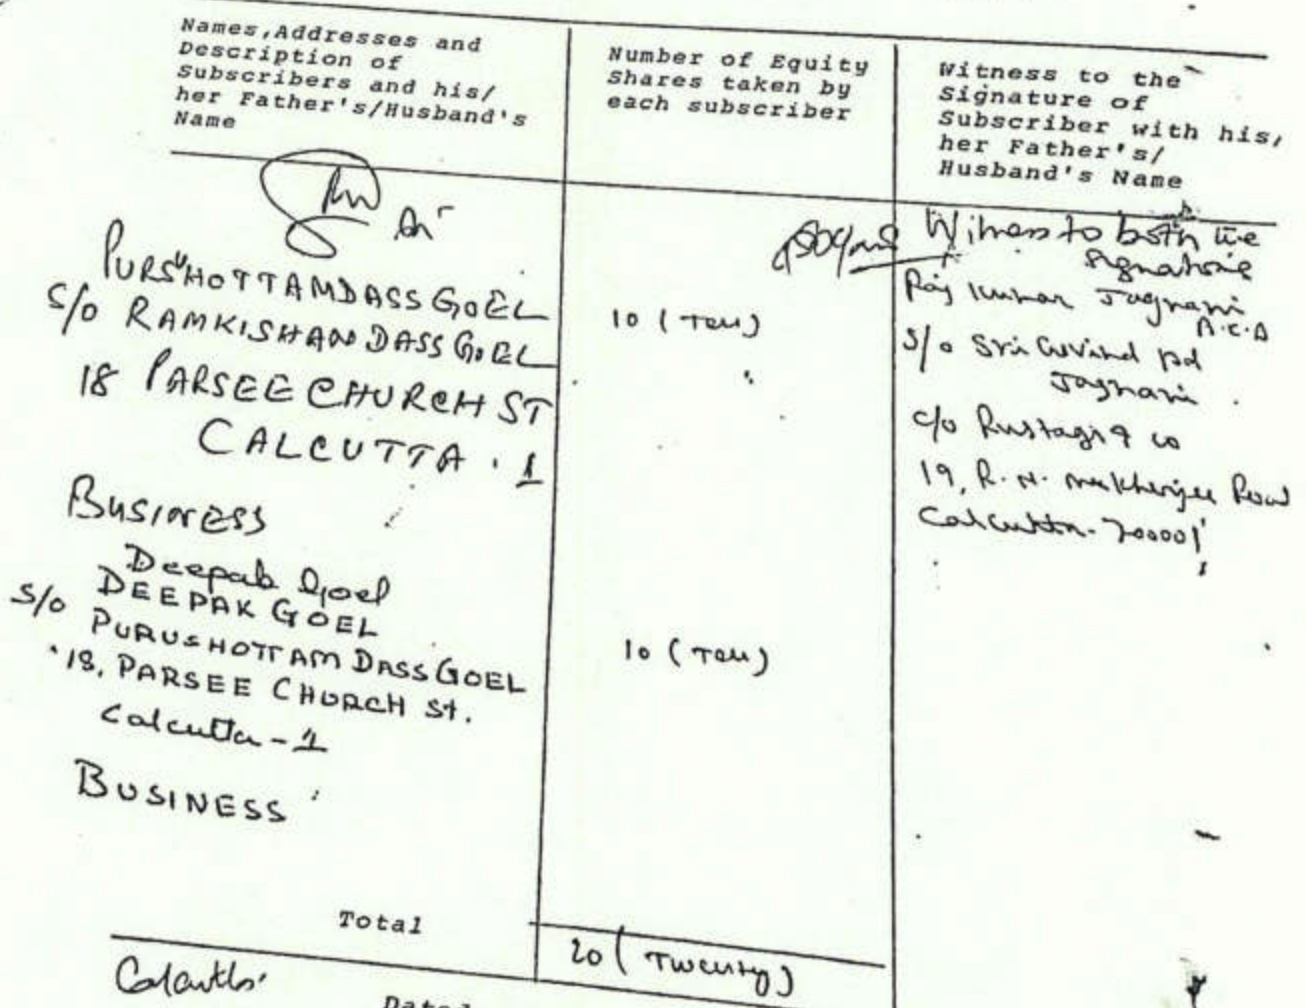 Names,Addresses and
Description of
Subscribers and his/
her Father's/Husband's
Name
Number of Equity
Shares taken by
each subscriber
Witness to the
Signature of
Subscriber with his/
her Father's/
Husband's Name
PURSUHOTTAMDASS GOEL
S/O RAMKISHAN DASS GOEL
18 PARSEE CHURCH ST
CALCUTTA . 1
BUSINESS
10 (Ten)
Witness to both the
signatures
Raj Kumar Jagnani
A.C.A
S/o Sri Govind pd
Jagnani
c/o Rustagi & co
19, R. N. Mukherjee Road
Calcutta - 700001
Deepak Goel
DEEPAK GOEL
S/o PURUSHOTTAM DASS GOEL
18, PARSEE CHURCH St.
Calcutta - 1
BUSINESS
10 (Ten)
Total
20 (Twenty)
Calcutta